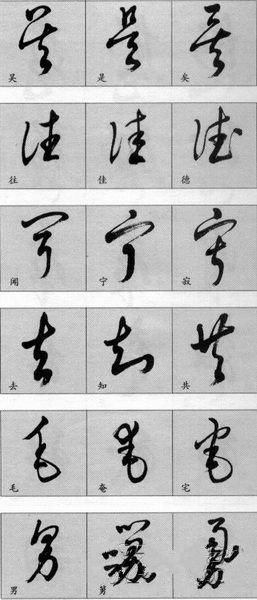 吴 是 矣
往 佳 德
闻 宁 寂
去 知 共
毛 奄 宅
男